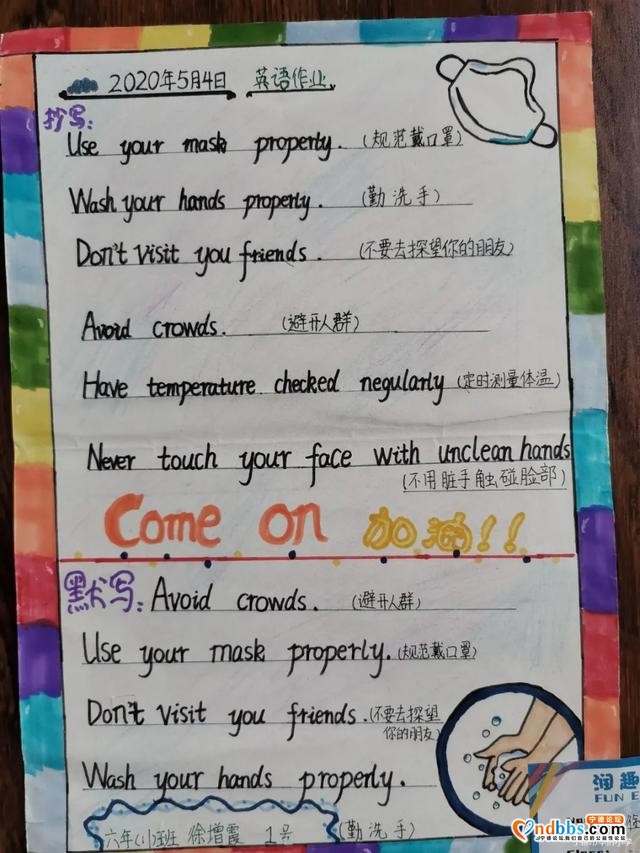 2020年5月4日 英语作业
抄写:
Use your mask properly. (规范戴口罩)
Wash your hands properly. (勤洗手)
Don't visit you friends. (不要去探望你的朋友)
Avoid crowds. (避开人群)
Have temperature checked negularly (定时测量体温)
Never touch your face with unclean hands
(不用脏手触碰脸部)
Come on 加油!!
默写: Avoid crowds. (避开人群)
Use your mask properly. (规范戴口罩)
Don't visit you friends. (不要去探望
你的朋友)
Wash your hands properly.
六年(1)班 徐增霞 1号 (勤洗手)
润趣
FUN E
宁德论坛
ndbbs.com